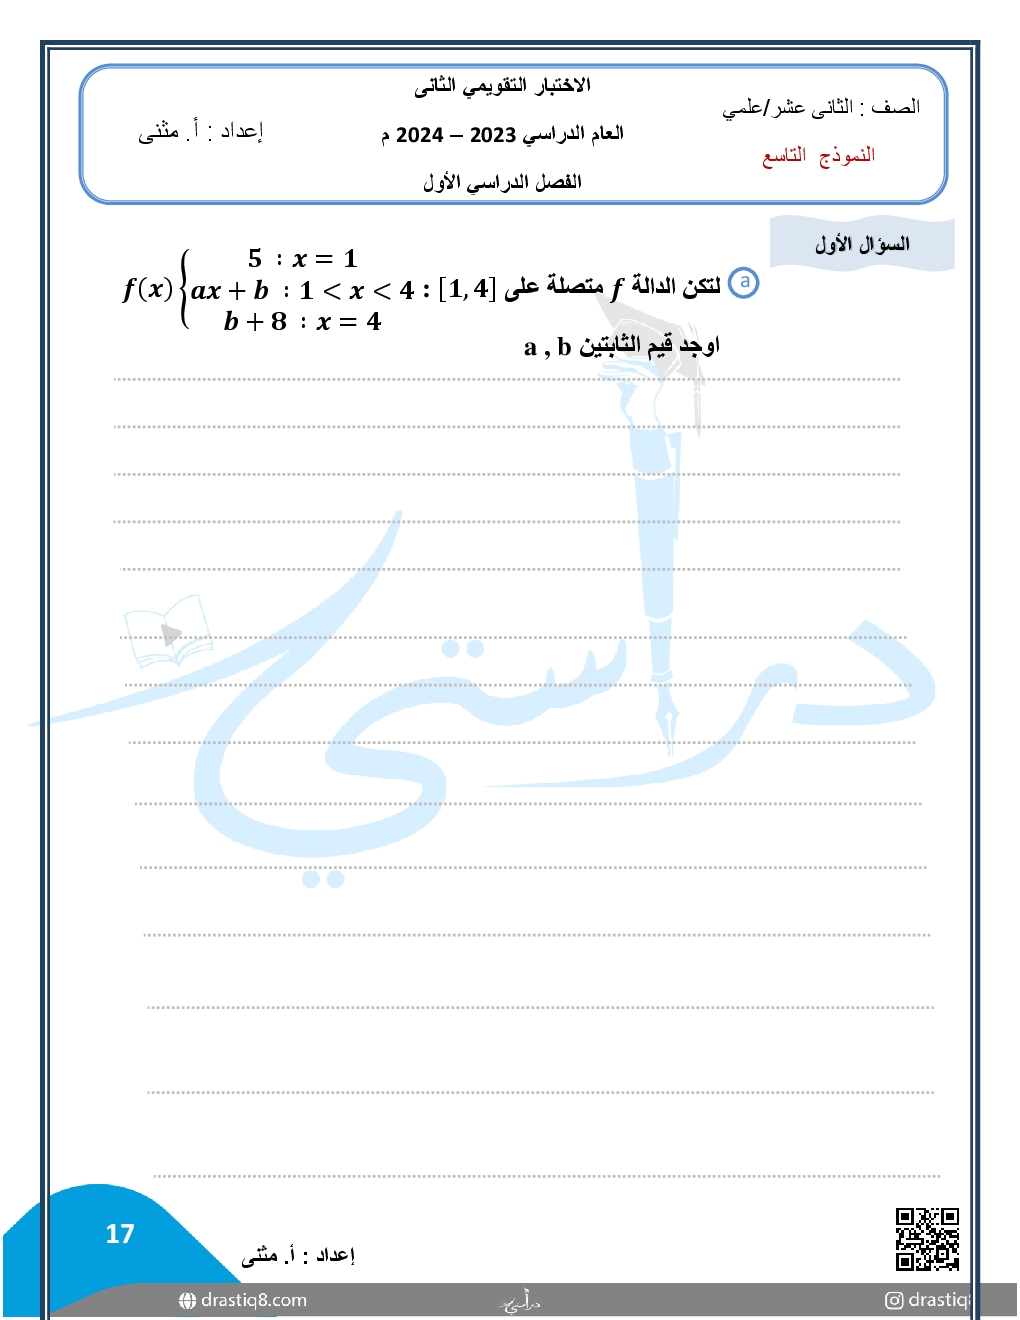 الصف : الثانى عشر/علمي
النموذج التاسع
الاختبار التقويمي الثانى
العام الدراسي 2023 – 2024 م
الفصل الدراسي الأول
إعداد : أ. مثنى
السؤال الأول
a لتكن الدالة f متصلة على [1, 4] : f(x) { 5 : x = 1
ax + b : 1 < x < 4
b + 8 : x = 4
اوجد قيم الثابتين a , b
دراستي
17
إعداد : أ. مثنى
drastiq8.com
دراستي
drastiq8